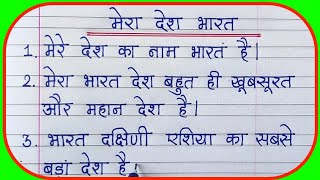 मेरा देश भारत
1. मेरे देश का नाम भारत है।
2. मेरा भारत देश बहुत ही खूबसूरत
और महान देश है।
3. भारत दक्षिणी एशिया का सबसे
बड़ा देश है।